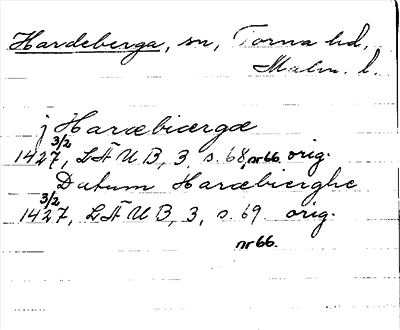 Hardeberga, sn, Torna hd,
Malm. l.
j Haræbiærgæ
1427 3/2, LÄUB, 3, s. 68, nr 66 orig.
Datum Haræbierghe
1427 3/2, LÄUB, 3, s. 69 orig.
nr 66.